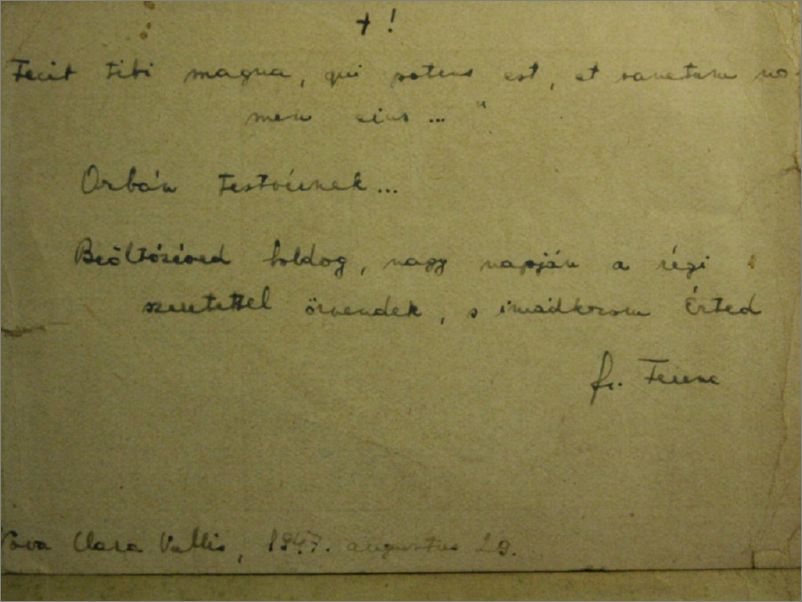 +!
Fecit tibi magna, qui potens est, et sanctum no-
men eius..."
Orbán testvérnek...
Beöltözésed boldog, nagy napján a régi
szeretettel örvendek, s imádkozom Érted
fr. Ferenc
Nova Clara Vallis, 1947. augusztus 29.